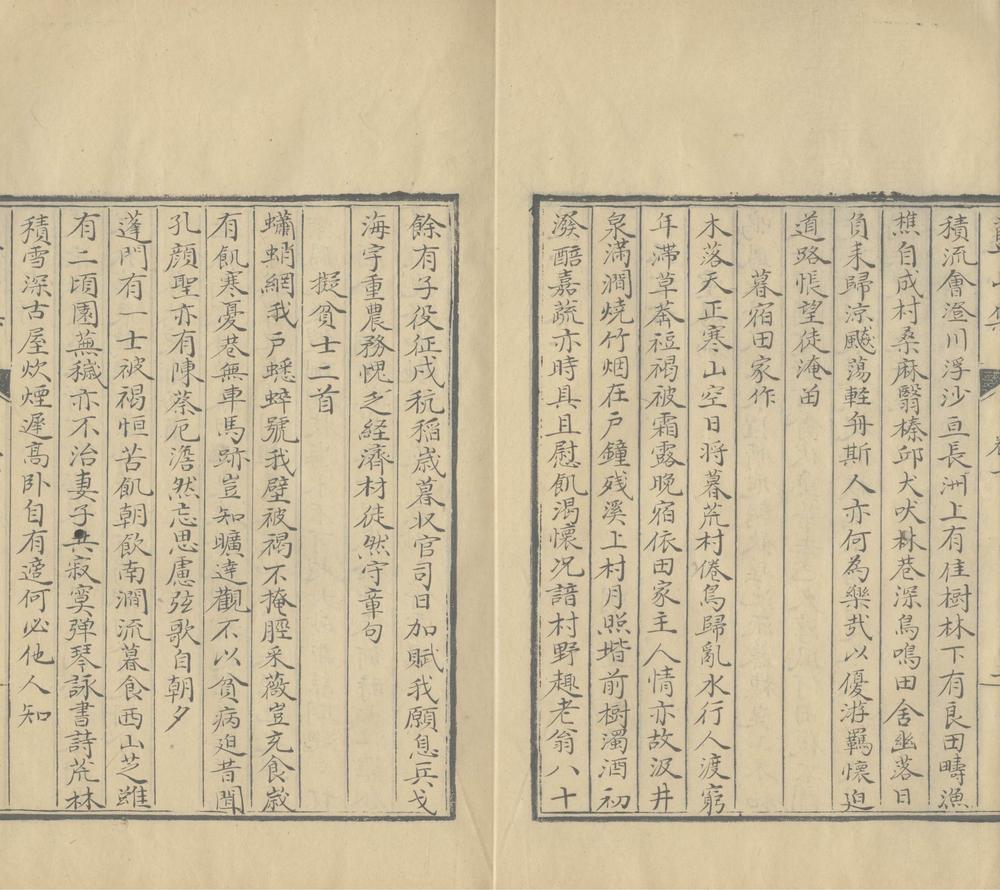 積流會澄川浮沙亘長洲上有佳樹林下有良田疇漁
樵自成村桑麻翳榛邱犬吠林巷深鳥鳴田舍幽落日
負耒歸涼飈蕩軽舟斯人亦何為樂哉以優游羈懷迫
道路悵望徒淹畱
暮宿田家作
木落天正寒山空日将暮荒村倦鳥歸亂水行人渡窮
年滞草莽裋褐被霜露晚宿依田家主人情亦故汲井
泉滿澗燒竹烟在戸鐘残溪上村月照堦前樹濁酒初
潑醅嘉蔬亦時具且慰飢渴懷况諳村野趣老翁八十
餘有子役征戍秔稻歳暮収官司日加賦我願息兵戈
海宇重農務愧乏経濟材徒然守章句
擬貧士二首
蠨蛸網我戸蟋蟀號我壁被褐不掩脛采薇豈充食歳
有飢寒憂巷無車馬跡豈知曠達觀不以貧病迫昔聞
孔顔聖亦有陳蔡厄澹然忘思慮弦歌自朝夕
蓬門有一士被褐恒苦飢朝飲南澗流暮食西山芝雖
有二頃園蕪穢亦不治妻子共寂寞弹琴詠書詩荒林
積雪深古屋炊煙遲髙卧自有適何必他人知